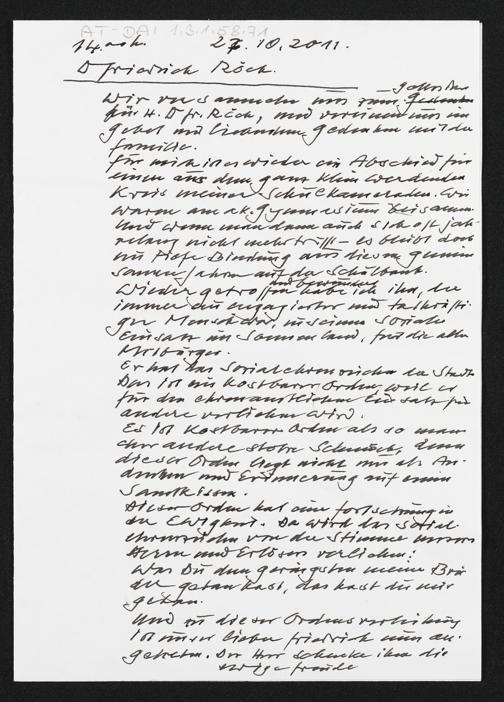 AT-DAI 1.3.1.58.71
14. 27.10.2011.
D Friedrich Röck.
Wir versammeln uns zum
für H. D fr. Röck, und vereinen uns im
gebet und liebendem gedenken mit der
familie.
für mich ist es wieder ein Abschied für
einen aus dem ganz klein werdenden
Kreis meiner Schulkameraden. Wir
waren am ak. gymnasium beisammen.
Und wenn man dann auch sich oft jah-
relang nicht mehr trifft – es bleibt doch
eine tiefe Bindung aus diesen gemein
samen Jahren auf der Schulbank.
und bewundert
Wieder getroffen habe ich ihn, der
immer ein engagierter und tatkräfti-
ger Mensch war, in seinem Soziale
Einsatz im Sonnenland, für die alten
Mitbürger.
Er hat das Sozialehrenzeichen der Stadt
Das ist ein kostbarer Orden, weil er
für den ehrenamtlichen Einsatz für
andere verliehen wird.
Es ist kostbarer Orden als so man-
cher andere stolze Schmuck, denn
dieser Orden liegt nicht nur als An-
denken und Erinnerung auf einem
Samtkissen.
Dieser Orden hat eine fortsetzung in
der Ewigkeit. Da wird das Sozial-
ehrenzeichen von der Stimme unseres
Herrn und Erlösers verliehen:
Was Du dem geringsten meiner Brü-
der getan hast, das hast du mir
getan.
Und zu dieser Ordensverleihung
ist unser lieber friedrich nun an-
getreten. Der Herr schenke ihm die
ewige freude